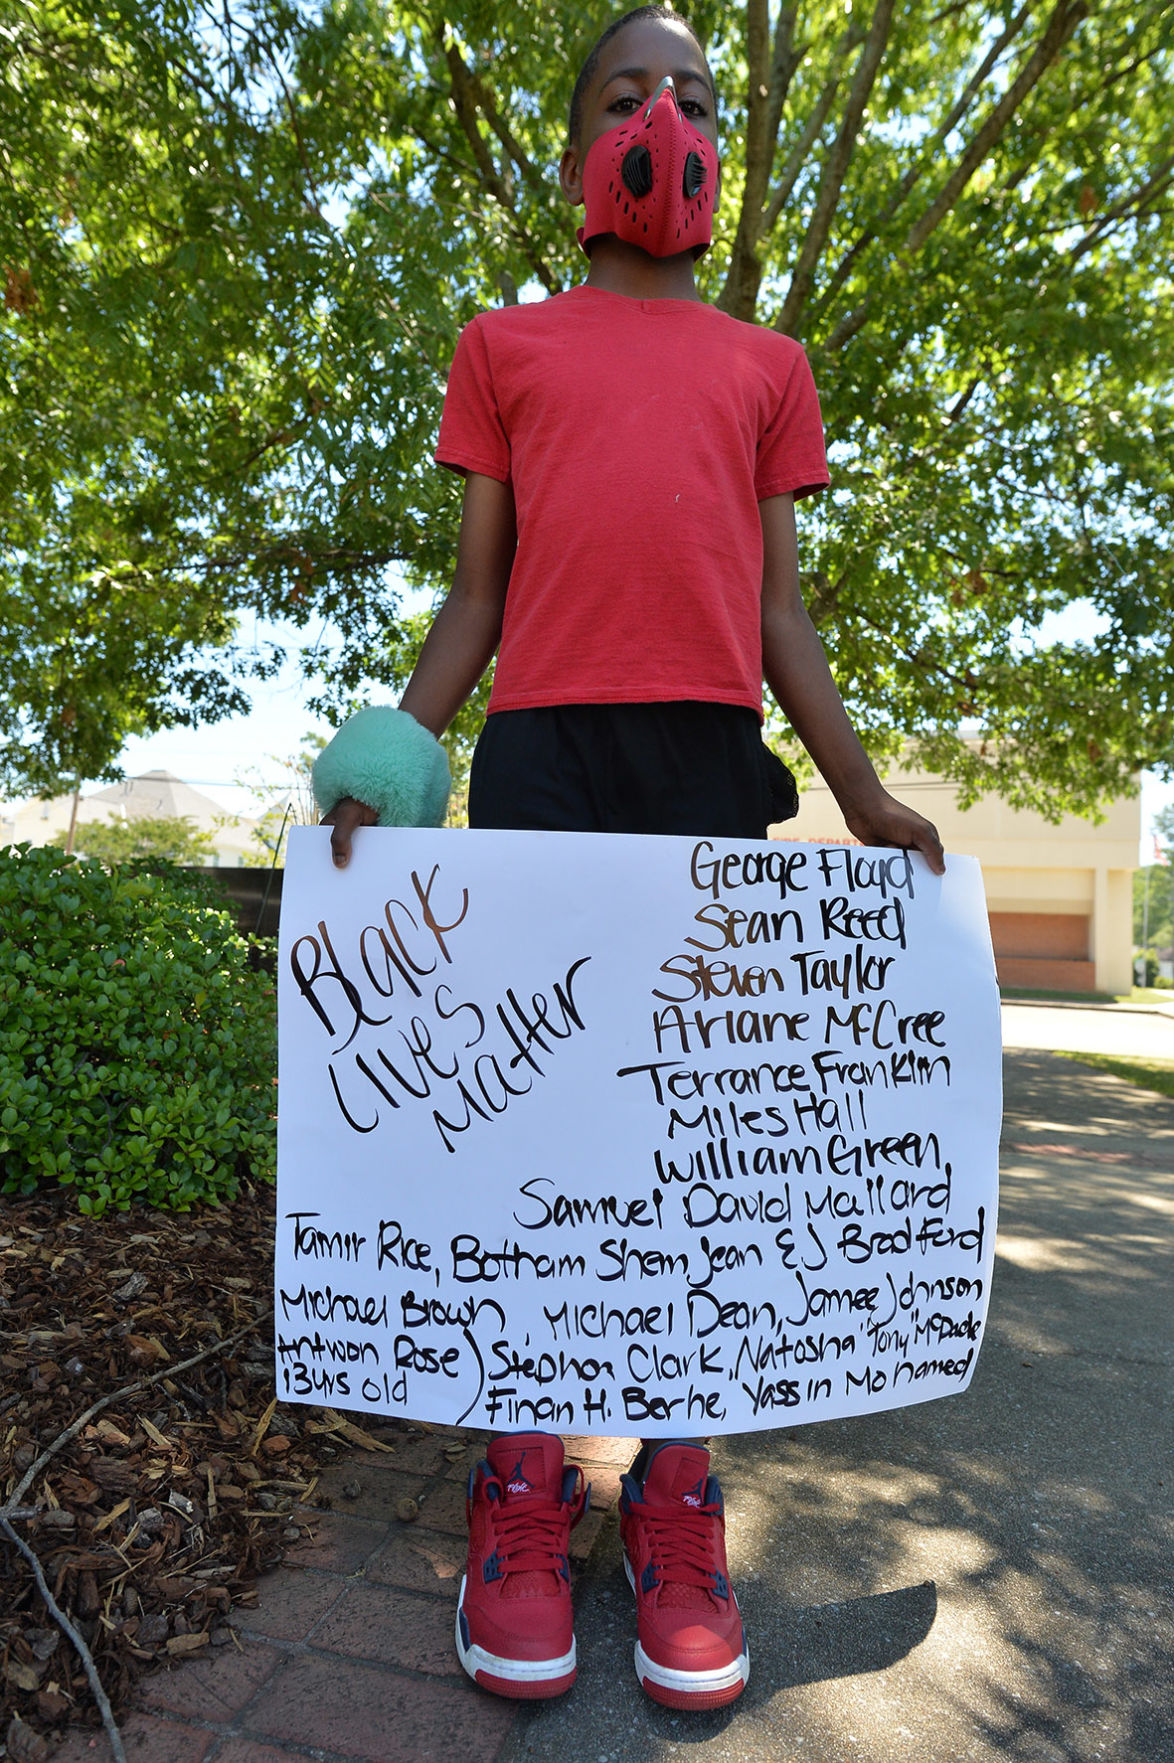 Black
Lives
Matter
George Floyd
Sean Reed
Steven Taylor
Ariane McCree
Terrance Franklin
Miles Hall
William Green,
Samuel David Mallard
Tamir Rice, Botham Shem Jean EJ Bradford
Michael Brown, Michael Dean, Jamee Johnson
Antwon Rose) Stephon Clark, Natosha "Tony" McDade
13yrs old Finan H. Berhe, Yassin Mohamed
FIRE DEPART